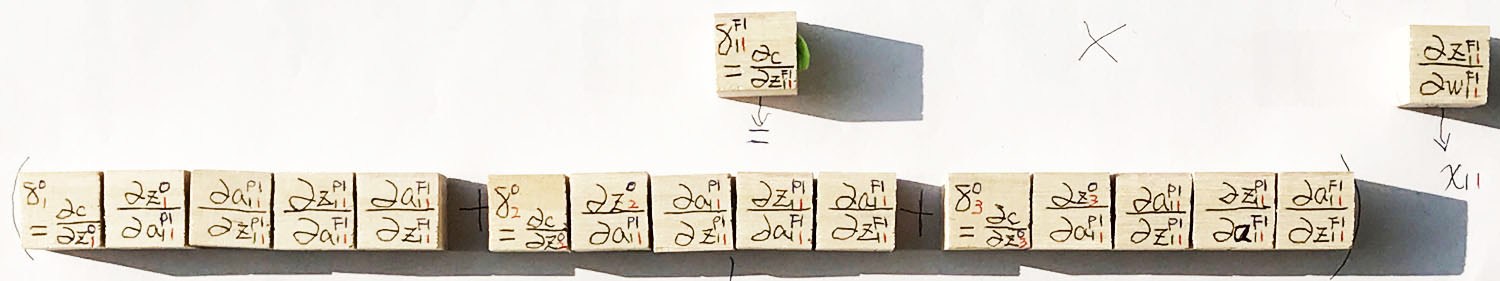 δ₁₁^{F1} = ∂c/∂z₁₁^{F1} × ∂z₁₁^{F1}/∂w₁₁^{F1}
↓ ↓
= x₁₁
(δ₁^0 = ∂c/∂z₁^0 ∂z₁^0/∂a₁₁^{P1} ∂a₁₁^{P1}/∂z₁₁^{P1} ∂z₁₁^{P1}/∂a₁₁^{F1} ∂a₁₁^{F1}/∂z₁₁^{F1} + δ₂^0 = ∂c/∂z₂^0 ∂z₂^0/∂a₁₁^{P1} ∂a₁₁^{P1}/∂z₁₁^{P1} ∂z₁₁^{P1}/∂a₁₁^{F1} ∂a₁₁^{F1}/∂z₁₁^{F1} + δ₃^0 = ∂c/∂z₃^0 ∂z₃^0/∂a₁₁^{P1} ∂a₁₁^{P1}/∂z₁₁^{P1} ∂z₁₁^{P1}/∂a₁₁^{F1} ∂a₁₁^{F1}/∂z₁₁^{F1})